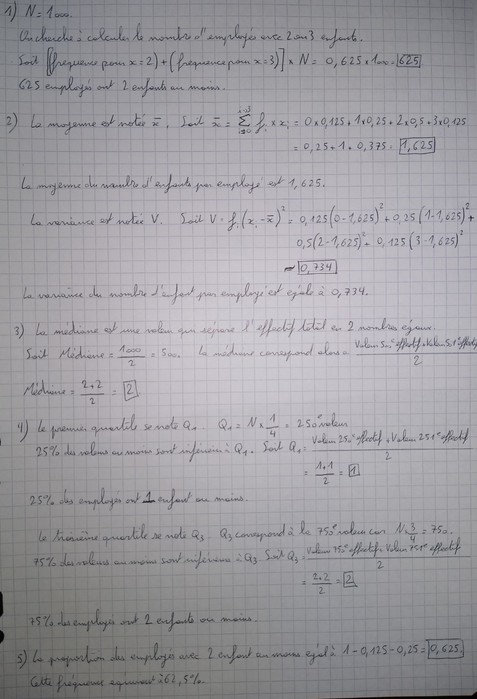 1) N = 1000.
On cherche à calculer le nombre d'employés avec 2 ou 3 enfants.
Soit [(fréquence pour x = 2) + (fréquence pour x = 3)] × N = 0,625 × 1000 = 625
625 employés ont 2 enfants au moins.
2) La moyenne est notée x̄. Soit x̄ = Σ fi × xi = 0×0,125 + 1×0,25 + 2×0,5 + 3×0,125
= 0,25 + 1 + 0,375 = 1,625
La moyenne du nombre d'enfants par employé est 1,625.
La variance est notée V. Soit V = fi (xi - x̄)² = 0,125(0-1,625)² + 0,25(1-1,625)² +
0,5(2-1,625)² + 0,125(3-1,625)²
≈ 0,734
La variance du nombre d'enfant par employé est égale à 0,734.
3) La médiane est une valeur qui sépare l'effectif total en 2 nombres égaux.
Soit Médiane = 1000/2 = 500. La médiane correspond alors à (Valeur 500e effectif + Valeur 501e effectif)/2
Médiane = (2+2)/2 = 2
4) Le premier quartile se note Q1. Q1 = N × 1/4 = 250e valeur
25% des valeurs au moins sont inférieurs à Q1. Soit Q1 = (Valeur 250e effectif + Valeur 251e effectif)/2
= (1+1)/2 = 1
25% des employés ont 1 enfant ou moins.
Le troisième quartile se note Q3. Q3 correspond à la 750e valeur car N × 3/4 = 750.
75% des valeurs au moins sont inférieurs à Q3. Soit Q3 = (Valeur 750e effectif + Valeur 751e effectif)/2
= (2+2)/2 = 2
75% des employés ont 2 enfants ou moins.
5) La proportion des employés avec 2 enfant au moins égal à 1 - 0,125 - 0,25 = 0,625.
Cette fréquence équivaut à 62,5%.